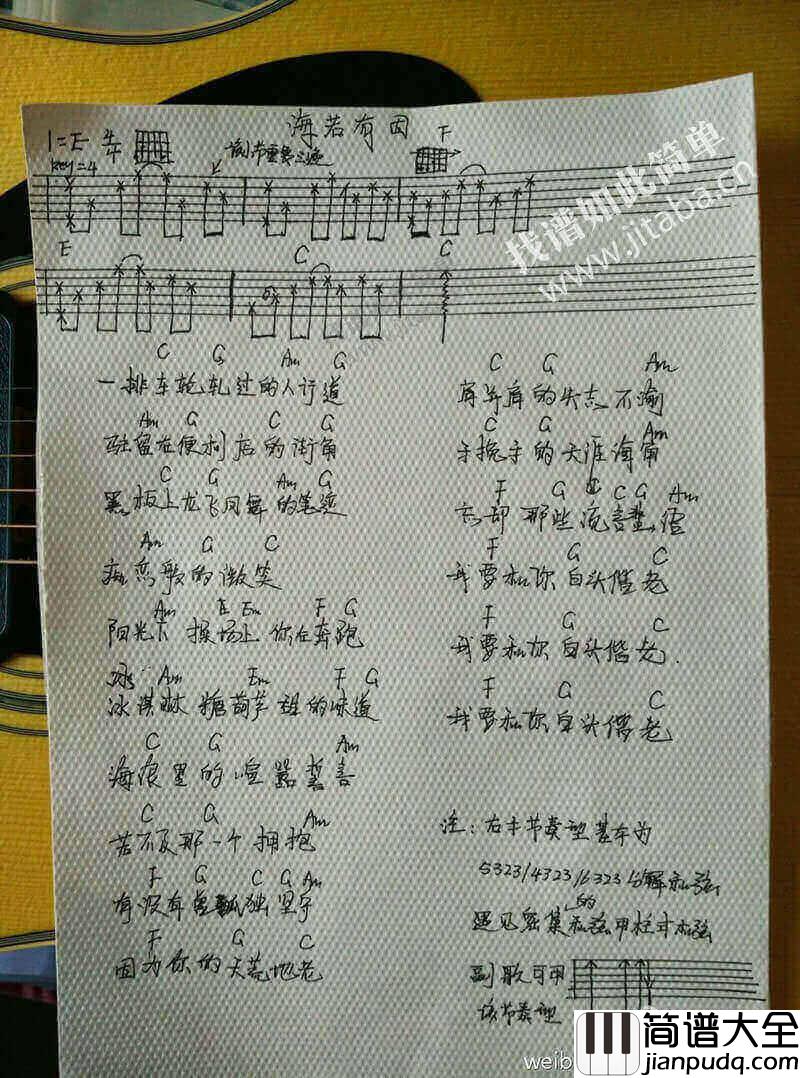 海若有因
1=E 4/4
key=4
该小节重复三遍
F
E C C
C G Am G
一排车轮轧过的人行道
Am G C G
驻留在便利店的街角
C G Am G
黑板上龙飞凤舞的笔迹
Am G C
恋歌的微笑
Am E Em F G
阳光下 操场上 你在奔跑
Am Em F G
冰淇淋 糖葫芦 甜的味道
C G Am
海浪里的喧嚣誓言
C G Am
若不及那一个拥抱
F G C G Am
有没有曾孤独坚守
F G C
因为你的天荒地老
C G Am
肩并肩的矢志不渝
C G Am
手挽手的天涯海角
F G C C G Am
忘却那些流言蜚语
F G C
我要和你白头偕老
F G C
我要和你白头偕老.
F G C
我要和你白头偕老
注:右手节奏型基本为
5323/4323/6323分解和弦
遇见密集的和弦用柱式和弦
副歌可用
该节奏型
找谱如此简单
www.jitaba.cn
weib
简谱大全
jianpudq.com